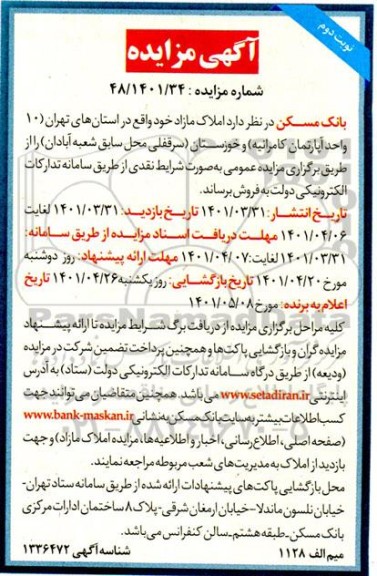 نوبت دوم
آگهی مزایده
شماره مزایده : ۴۸/۱۴۰۱/۳۴
بانک مسکن در نظر دارد املاک مازاد خود واقع در استان‌های تهران (۱۰
واحد آپارتمان کامرانیه) و خوزستان (سرقفلی محل سابق شعبه آبادان) را از
طریق برگزاری مزایده عمومی به‌صورت شرایط نقدی از طریق سامانه تدارکات
الکترونیکی دولت به فروش برساند.
تاریخ انتشار: ۱۴۰۱/۰۳/۳۱ تاریخ بازدید: ۱۴۰۱/۰۳/۳۱ لغایت
۱۴۰۱/۰۴/۰۶ مهلت دریافت اسناد مزایده از طریق سامانه:
۱۴۰۱/۰۳/۳۱ لغایت: ۱۴۰۱/۰۴/۰۷ مهلت ارائه پیشنهاد: روز دوشنبه
مورخ ۱۴۰۱/۰۴/۲۰ تاریخ بازگشایی: روز یکشنبه ۱۴۰۱/۰۴/۲۶ تاریخ
اعلام به برنده: مورخ ۱۴۰۱/۰۵/۰۸
کلیه مراحل برگزاری مزایده از دریافت برگ شرایط مزایده تا ارائه پیشنهاد
مزایده گران و بازگشایی پاکت‌ها و همچنین پرداخت تضمین شرکت در مزایده
(ودیعه) از طریق درگاه سامانه تدارکات الکترونیکی دولت (ستاد) به آدرس
اینترنتی www.setadiran.ir می‌باشد. همچنین متقاضیان می‌توانند جهت
کسب اطلاعات بیشتر به سایت بانک مسکن به نشانی www.bank-maskan.ir
(صفحه اصلی، اطلاع‌رسانی، اخبار و اطلاعیه‌ها، مزایده املاک مازاد) و جهت
بازدید از املاک به مدیریت‌های شعب مربوطه مراجعه نمایند.
محل بازگشایی پاکت‌های پیشنهادات ارائه شده از طریق سامانه ستاد تهران-
خیابان نلسون ماندلا-خیابان ارمغان شرقی- پلاک ۸ ساختمان ادارات مرکزی
بانک مسکن-طبقه هشتم-سالن کنفرانس می‌باشد.
میم الف ۱۱۲۸ شناسه آگهی ۱۳۳۶۴۷۲
ParsNamadData